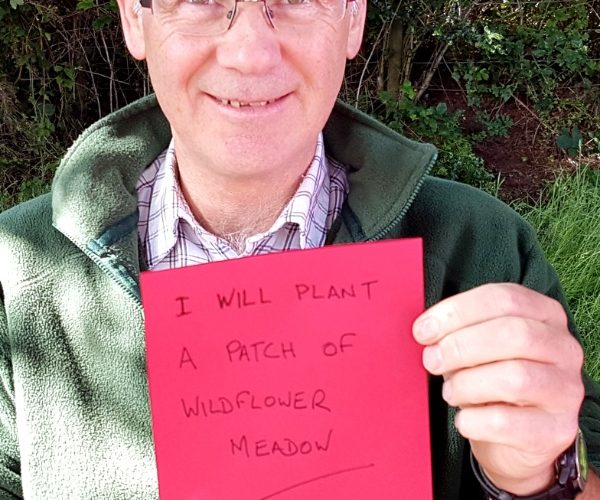 I WILL PLANT
A PATCH OF
WILDFLOWER
MEADOW